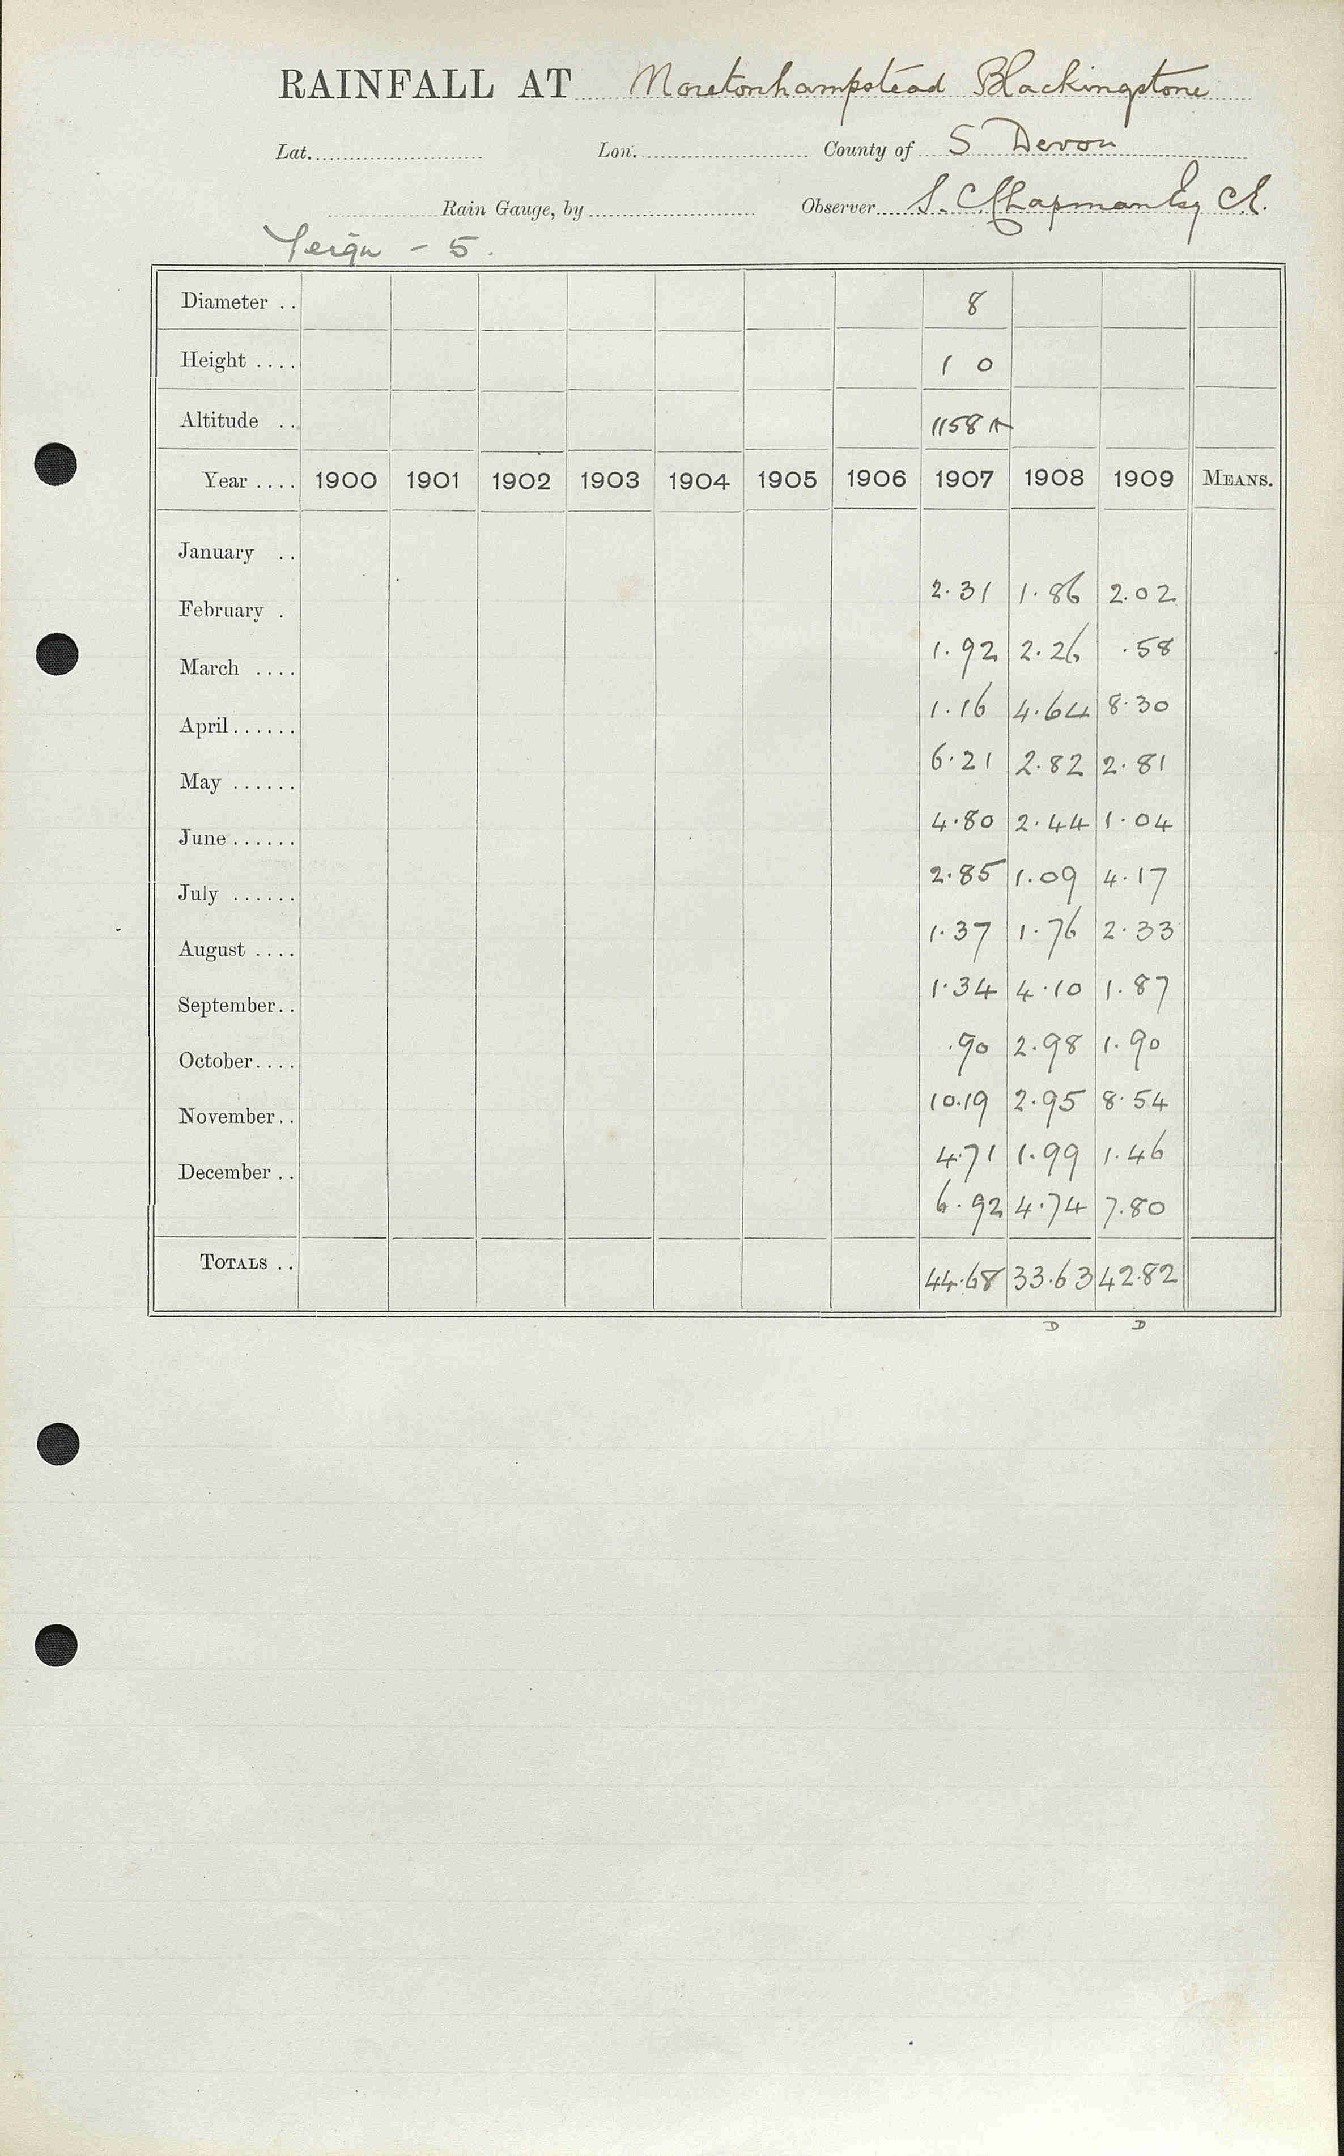 RAINFALL AT Moretonhampstead Blackingstone
Lat. Lon. County of S Devon
Rain Gauge, by Observer S. C. Chapman Esq C.E.
Teign - 5.
Diameter .. 8
Height .... 1 0
Altitude .. 1158
Year .... 1900 1901 1902 1903 1904 1905 1906 1907 1908 1909 MEANS.
January .. 2.31 1.86 2.02
February . 1.92 2.26 .58
March .... 1.16 4.64 8.30
April...... 6.21 2.82 2.81
May ...... 4.80 2.44 1.04
June...... 2.85 1.09 4.17
July ...... 1.37 1.76 2.33
August .... 1.34 4.10 1.87
September.. .90 2.98 1.90
October.... 10.19 2.95 8.54
November.. 4.71 1.99 1.46
December .. 6.92 4.74 7.80
TOTALS .. 44.68 33.63 42.82
D D